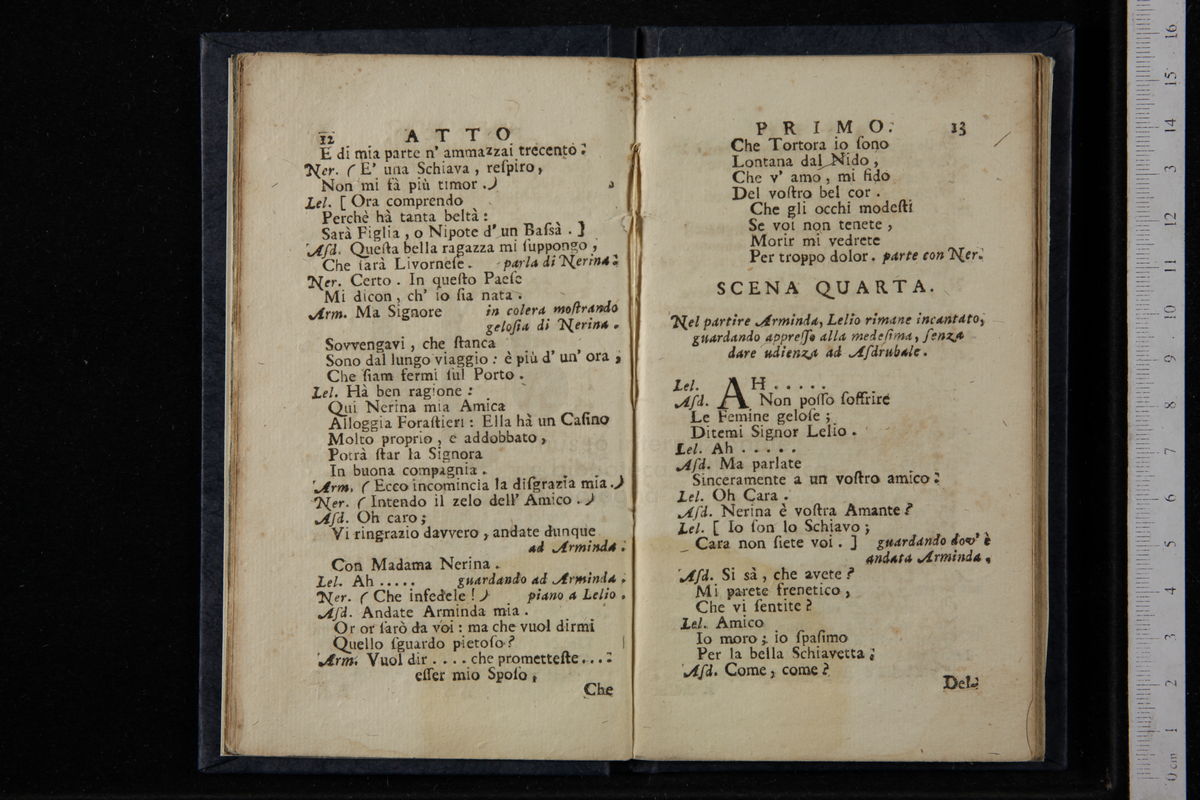 12 ATTO
E di mia parte n' ammazzai trecento.
Ner. ( E' una Schiava, reſpiro,
Non mi fà più timor.)
Lel. [ Ora comprendo
Perchè hà tanta beltà:
Sarà Figlia, o Nipote d' un Baſsà. ]
Aſd. Queſta bella ragazza mi ſuppongo,
Che ſarà Livorneſe. parla di Nerina.
Ner. Certo. In queſto Paeſe
Mi dicon, ch' io ſia nata.
Arm. Ma Signore in colera moſtrando
geloſia di Nerina.
Sovvengavi, che ſtanca
Sono dal lungo viaggio: è più d' un' ora,
Che ſiam fermi ſul Porto.
Lel. Hà ben ragione:
Qui Nerina mia Amica
Alloggia Foraſtieri: Ella hà un Caſino
Molto proprio, e addobbato,
Potrà ſtar la Signora
In buona compagnia.
Arm. ( Ecco incomincia la diſgrazia mia.)
Ner. ( Intendo il zelo dell' Amico.)
Aſd. Oh caro;
Vi ringrazio davvero, andate dunque
ad Arminda.
Con Madama Nerina.
Lel. Ah ..... guardando ad Arminda.
Ner. ( Che infedele!) piano a Lelio.
Aſd. Andate Arminda mia.
Or or ſarò da voi: ma che vuol dirmi
Quello ſguardo pietoſo?
Arm. Vuol dir .... che prometteſte....
eſſer mio Spoſo,
Che
PRIMO. 13
Che Tortora io ſono
Lontana dal Nido,
Che v' amo, mi fido
Del voſtro bel cor.
Che gli occhi modeſti
Se voi non tenete,
Morir mi vedrete
Per troppo dolor. parte con Ner.
SCENA QUARTA.
Nel partire Arminda, Lelio rimane incantato,
guardando appreſſo alla medeſima, ſenza
dare udienza ad Aſdrubale.
Lel. AH .....
Aſd. Non poſſo ſoffrire
Le Femine geloſe;
Ditemi Signor Lelio.
Lel. Ah .....
Aſd. Ma parlate
Sinceramente a un voſtro amico.
Lel. Oh Cara.
Aſd. Nerina è voſtra Amante?
Lel. [ Io ſon lo Schiavo;
Cara non ſiete voi. ] guardando dov' è
andata Arminda.
Aſd. Si sà, che avete?
Mi parete frenetico,
Che vi ſentite?
Lel. Amico
Io moro; io ſpaſimo
Per la bella Schiavetta.
Aſd. Come, come?
Del-